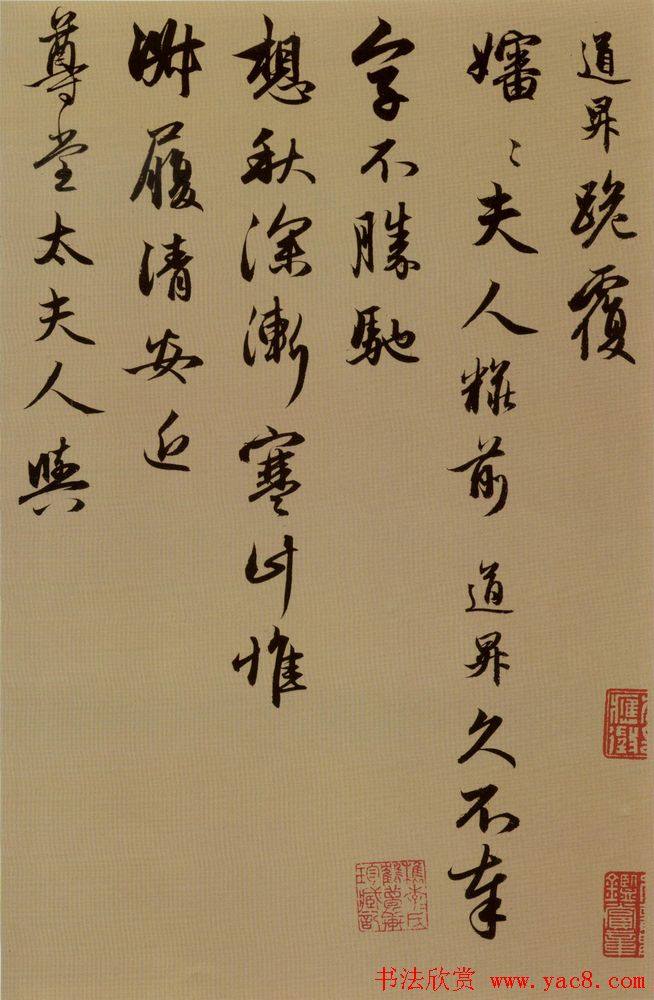 道昇跪覆
嬸〻夫人粧前 道昇久不奉
字不勝馳
想秋深漸寒計惟
淑履清安近
尊堂太夫人與
书法欣赏 www.yac8.com